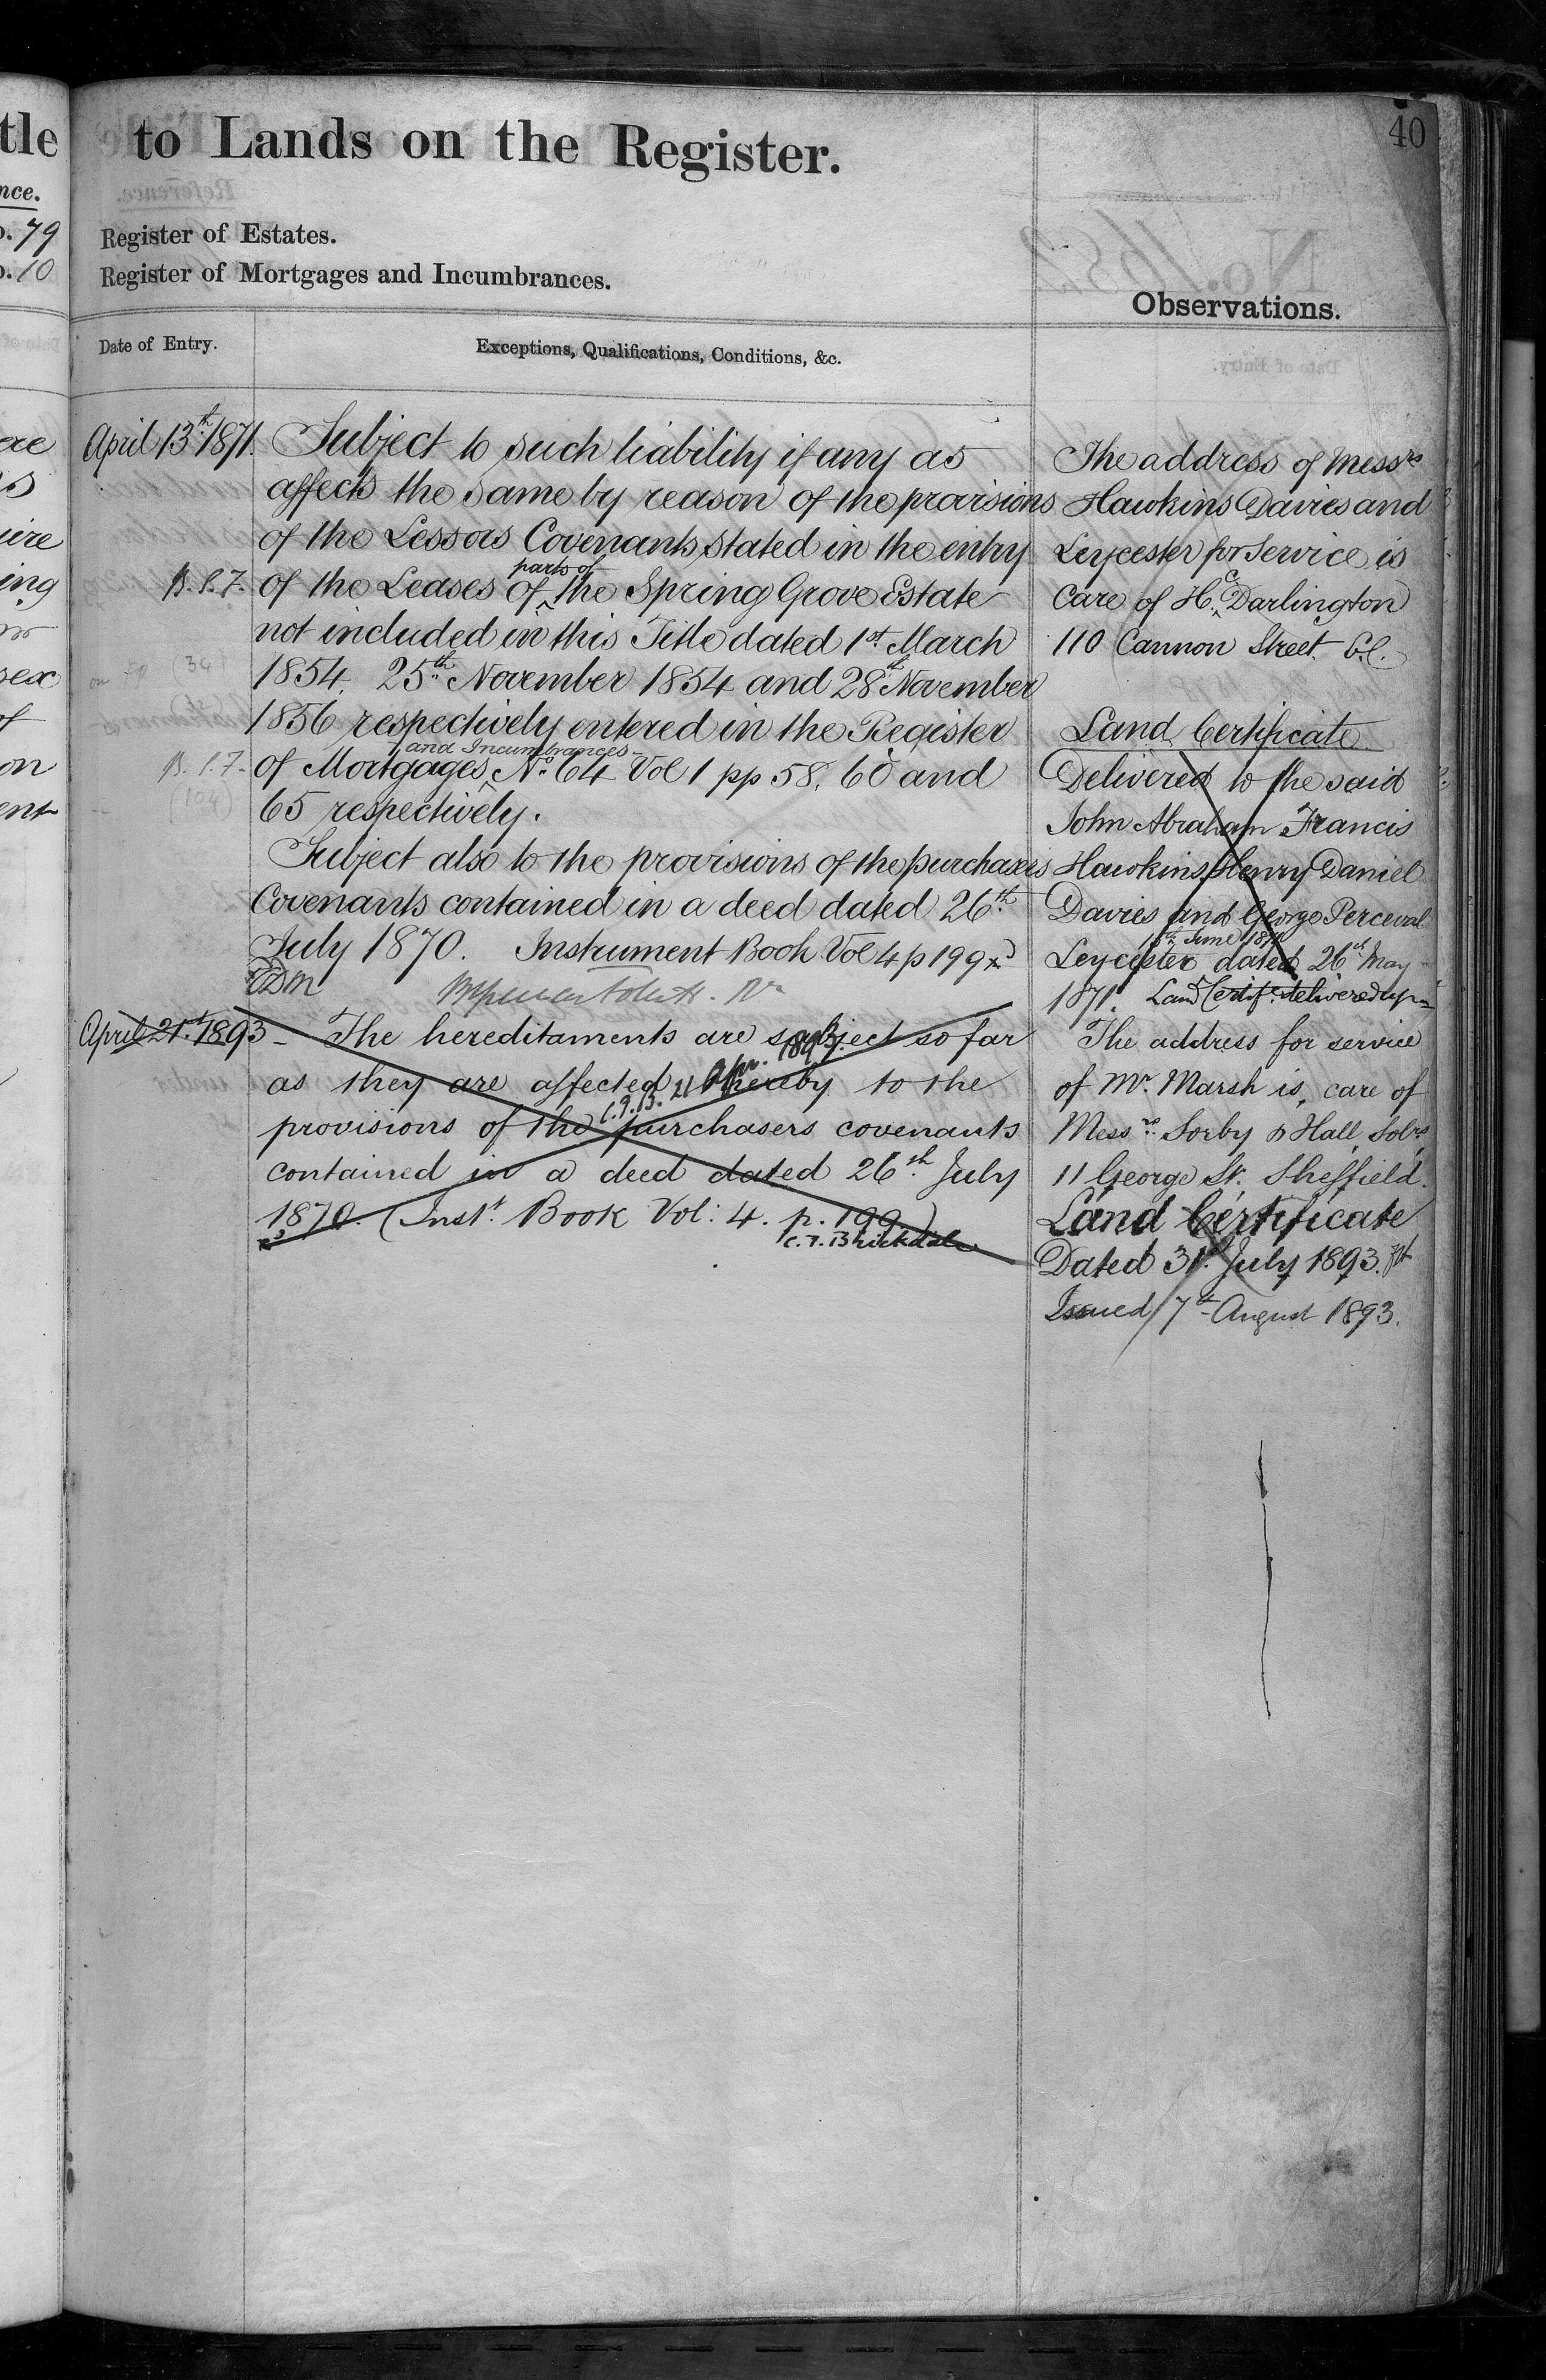 40
to Lands on the Register.
Register of Estates.
Register of Mortgages and Incumbrances.
Observations.
Date of Entry.
Exceptions, Qualifications, Conditions, &c.
April 13th 1871.
Subject to such liability if any as
affects the same by reason of the provisions
of the Lessors Covenants stated in the entry
B.S.7. of the Leases of parts of the Spring Grove Estate
not included in this Title dated 1st March
1854. 25th November 1854 and 28th November
1856 respectively entered in the Register
of Mortgages and Incumbrances No. 64 Vol 1 pp 58, 60 and
65 respectively.
Subject also to the provisions of the purchasers
Covenants contained in a deed dated 26th
July 1870. Instrument Book Vol 4 p 199
April 21st 1893 - The hereditaments are subject so far
as they are affected thereby to the
C.F.B. 21 Apr. 1897.
provisions of the purchasers covenants
contained in a deed dated 26th July
1870. (Inst. Book Vol: 4. p. 199.)
C.F. Brickdale
The address of Messrs
Hawkins Davies and
Leycester for service is
Care of H. C. Darlington
110 Cannon Street E.C.
Land Certificate
Delivered to the said
John Abraham Francis
Hawkins Henry Daniel
Davies and George Perceval
15th June 1871
Leycester dated 26th May
1871. Land Certif. delivered up
The address for service
of Mr. Marsh is, care of
Messrs. Sorby & Hall, Solrs
11 George St. Sheffield.
Land Certificate
Dated 31st July 1893.
Issued 7th August 1893.
tle
nce.
79
10